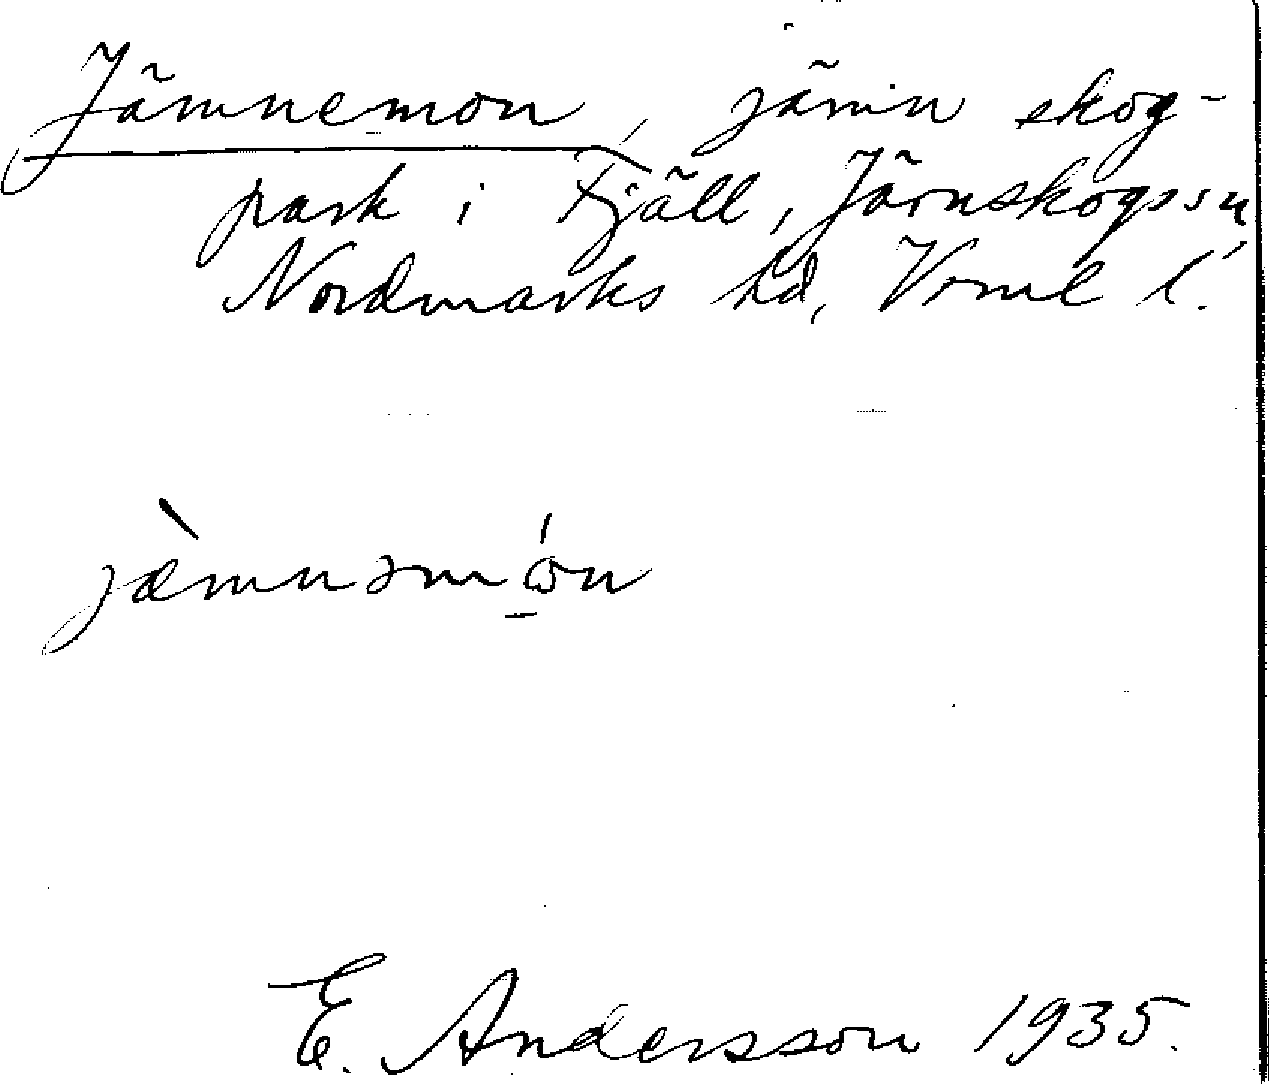 Jämnemon, jämn skog-
park i Fjäll, Järnskogs sn
Nordmarks hd, Vrml l.
jæ̀mnəmώn
E. Andersson 1935.